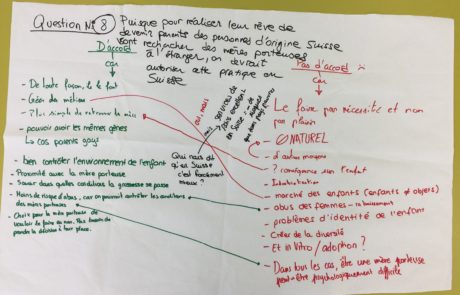 Question N° 8
Puisque pour réaliser leur rêve de
devenir parents des personnes d'origine Suisse
vont rechercher des mères porteuses
à l'étranger, on devrait
autoriser cette pratique en
Suisse
D'accord
car
- De toute façon, le font
- Gain du métier
- Plus simple de retrouver la mère
- pouvoir avoir les mêmes gènes
La cas parents gays!
- bien contrôler l'environnement de l'enfant
- Proximité avec la mère porteuse
- Savoir dans quelles conditions la grossesse se passe
- Moins de risque d'abus, car on pourrait contrôler les conditions
des mères porteuses
- Choix pour la mère porteuse de
vouloir le faire ou non. Pas besoin de
prendre la décision à leur place.
oui, mais
mais
en Suisse
Qui nous dit
qu'en Suisse
c'est forcément
mieux ?
Pas d'accord
car
- Le faire par nécessité et non
par plaisir
- NATUREL
- d'autres moyens
- ? conséquence sur l'enfant
- marché des enfants (enfants ≠ objets)
- abus des femmes
- problèmes d'identité de l'enfant
- Créer de la diversité
- Et in Vitro / adoption ?
- Dans tous les cas, être une mère porteuse
peut être psychologiquement difficile